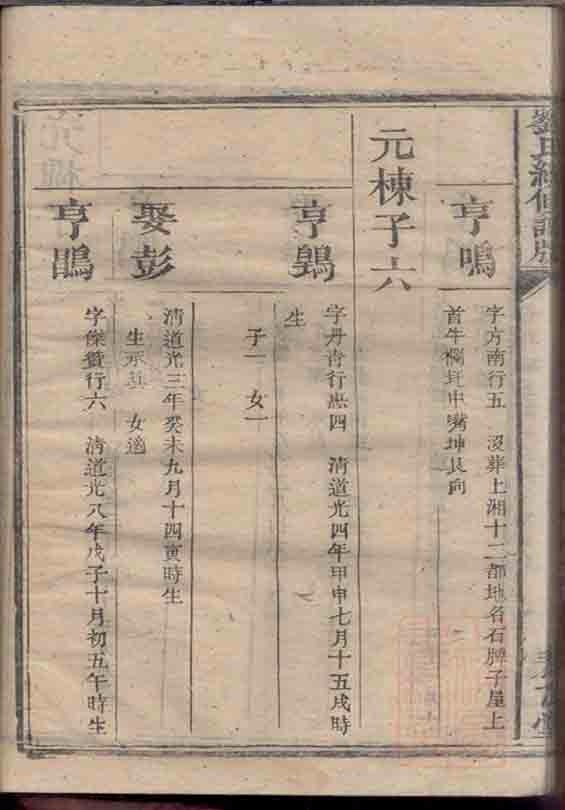 劉氏續修譜
亨鳴
字方南行五 沒葬上湘十二都地名石牌子屋上
首牛欄坵申嘴坤艮向
元棟子六
亨鶚
字丹青行 四 清道光四年甲申七月十五戌時
生
子一 女一
娶彭
清道光三年癸未九月十四寅時生
生承 女適
亨鵑
字傑賢行六 清道光八年戊子十月初五午時生